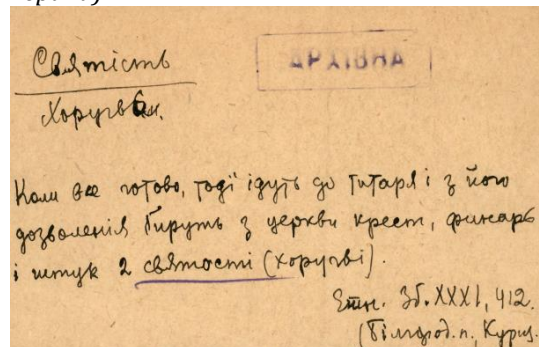 Святість
АРХІВНА
Хоругвби.
Коли все готово, тоді ідуть до титаря і з його
дозволенія беруть з церкви крест, финарь
і штук 2 святості (хоругві).
Етн. Зб. XXXI, 412.
(Білгород. п., Курщ.